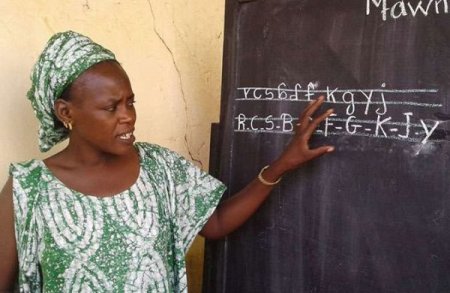 Mawn
r c s b d f k g y j
R-C-S-B- F-G-K-J-Y